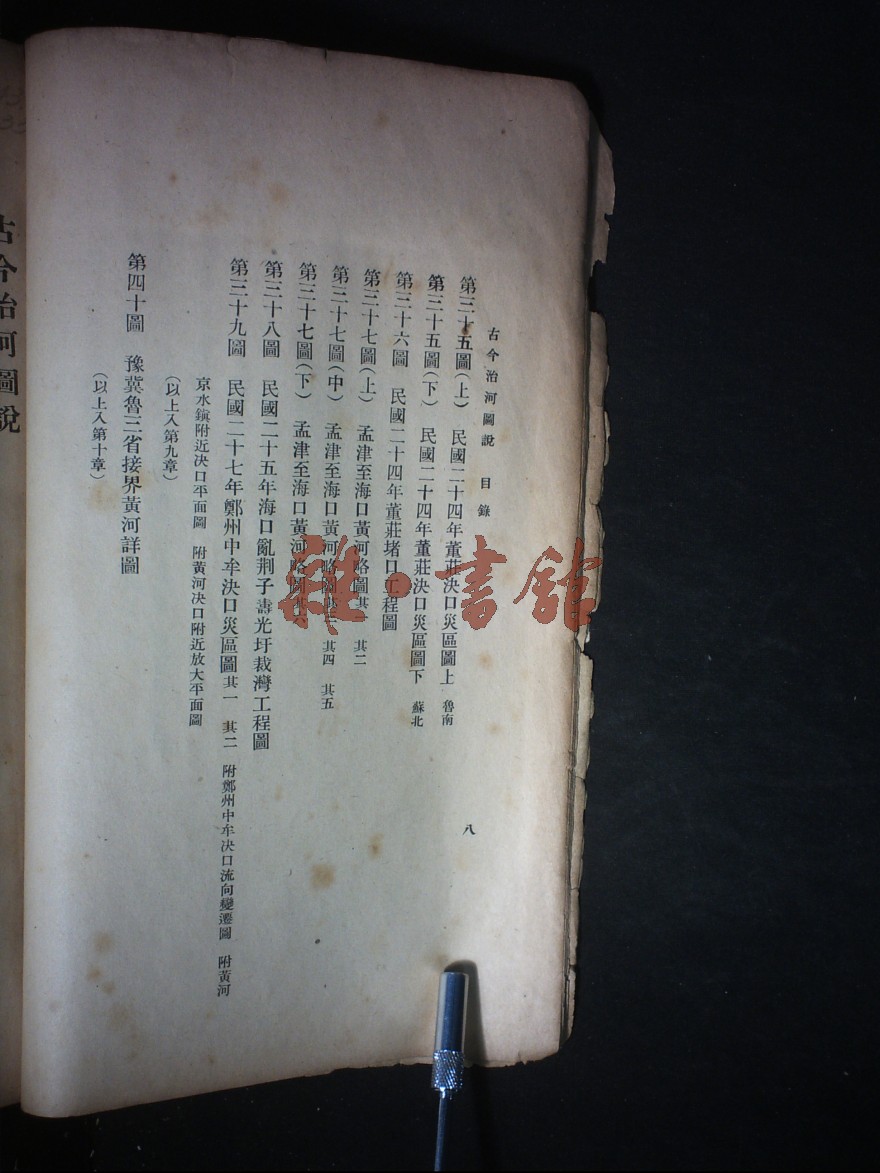 古今治河圖說 目錄 八
第三十五圖(上) 民國二十四年董莊決口災區圖上 魯南
第三十五圖(下) 民國二十四年董莊決口災區圖下 蘇北
第三十六圖 民國二十四年董莊堵口工程圖
第三十七圖(上) 孟津至海口黃河略圖其一 其二
第三十七圖(中) 孟津至海口黃河略圖其三 其四 其五
第三十七圖(下) 孟津至海口黃河略圖其六
第三十八圖 民國二十五年海口亂荆子壽光圩裁灣工程圖
第三十九圖 民國二十七年鄭州中牟決口災區圖其一 其二 附鄭州中牟決口流向變遷圖 附黃河
京水鎮附近決口平面圖 附黃河決口附近放大平面圖
(以上入第九章)
第四十圖 豫冀魯三省接界黃河詳圖
(以上入第十章)
古今治河圖說
雜·書館